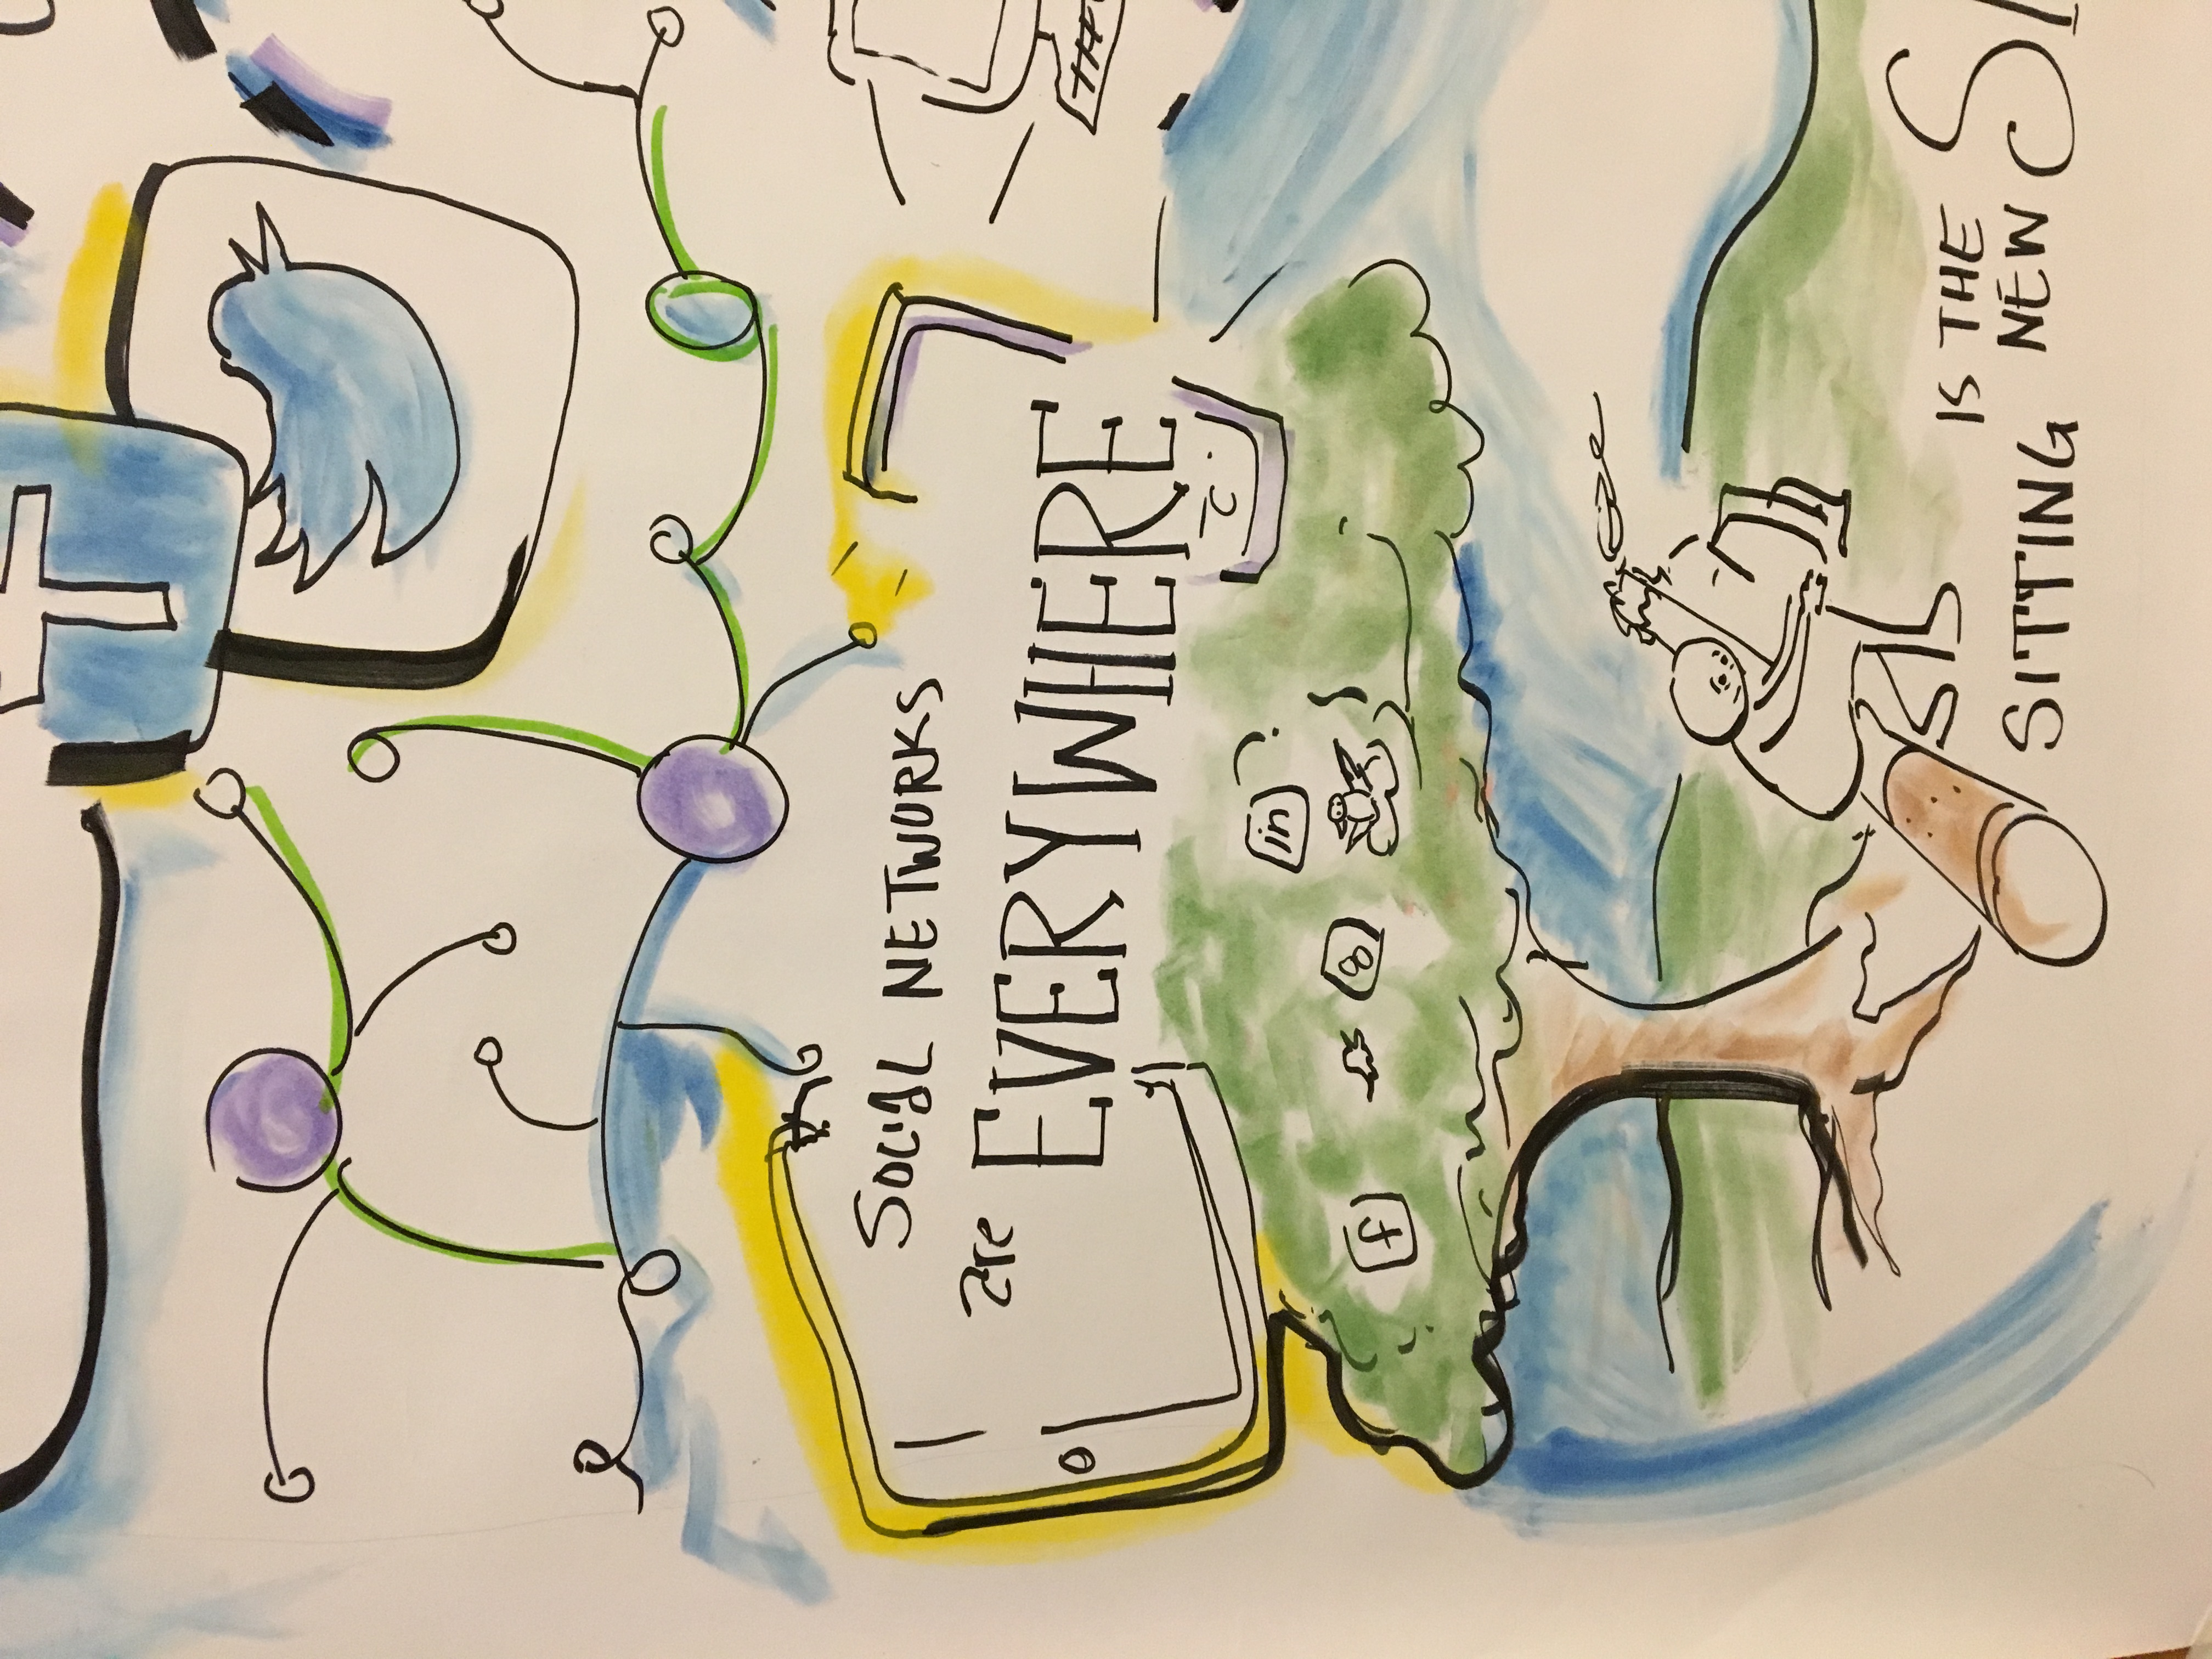 SOCIAL NETWORKS
are EVERYWHERE
in
f
8
SITTING IS THE
NEW